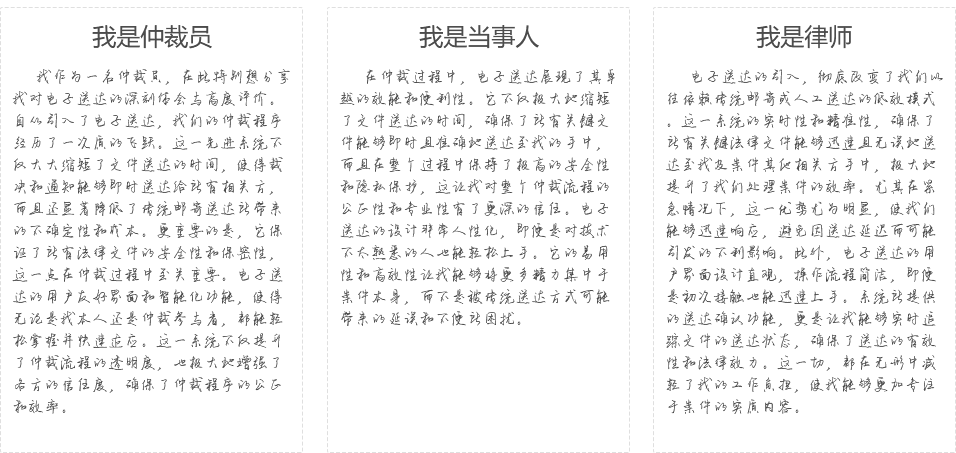 我是仲裁员
我作为一名仲裁员，在此特别想分享
我对电子送达的深刻体会与高度评价。
自从引入了电子送达，我们的仲裁程序
经历了一次质的飞跃。这一先进系统不
仅大大缩短了文件送达的时间，使得裁
决和通知能够即时送达给所有相关方，
而且还显著降低了传统邮寄送达所带来
的不确定性和成本。更重要的是，它保
证了所有法律文件的安全性和保密性，
这一点在仲裁过程中至关重要。电子送
达的用户友好界面和智能化功能，使得
无论是我本人还是仲裁参与者，都能轻
松掌握并快速适应。这一系统不仅提升
了仲裁流程的透明度，也极大地增强了
各方的信任度，确保了仲裁程序的公正
和效率。
我是当事人
在仲裁过程中，电子送达展现了其卓
越的效能和便利性。它不仅极大地缩短
了文件送达的时间，确保了所有关键文
件能够即时且准确地送达至我的手中，
而且在整个过程中保持了极高的安全性
和隐私保护，这让我对整个仲裁流程的
公正性和专业性有了更深的信任。电子
送达的设计非常人性化，即便是对技术
不太熟悉的人也能轻松上手。它的易用
性和高效性让我能够将更多精力集中于
案件本身，而不是被传统送达方式可能
带来的延误和不便所困扰。
我是律师
电子送达的引入，彻底改变了我们以
往依赖传统邮寄或人工送达的低效模式
。这一系统的实时性和精准性，确保了
所有关键法律文件能够迅速且无误地送
达至我及案件其他相关方手中，极大地
提升了我们处理案件的效率。尤其在紧
急情况下，这一优势尤为明显，使我们
能够迅速响应，避免因送达延迟而可能
引发的不利影响。此外，电子送达的用
户界面设计直观，操作流程简洁，即便
是初次接触也能迅速上手。系统所提供
的送达确认功能，更是让我能够实时追
踪文件的送达状态，确保了送达的有效
性和法律效力。这一切，都在无形中减
轻了我的工作负担，使我能够更加专注
于案件的实质内容。